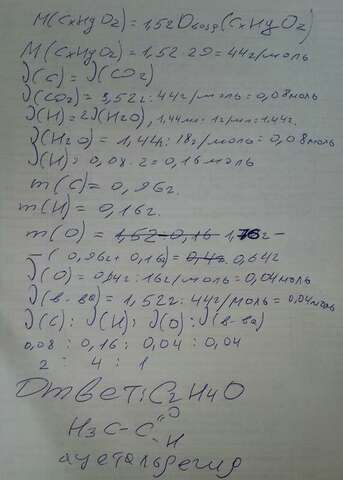 M(CxHyO2) = 1,52 Dвозд(CxHyO2)
M(CxHyO2) = 1,52 · 29 = 44г/моль
ν(C) = ν(CO2)
ν(CO2) = 3,52г : 44г/моль = 0,08моль
ν(H) = 2ν(H2O), 1,44мл · 1г/мл = 1,44г.
ν(H2O) = 1,44г : 18г/моль = 0,08моль
ν(H) = 0,08 · 2 = 0,16моль
m(C) = 0,96г.
m(H) = 0,16г.
m(O) = 1,52-0,16 1,76г –
– (0,96г + 0,16г) = 0,64г
ν(O) = 0,64г : 16г/моль = 0,04моль
ν(в-ва) = 1,52г : 44г/моль = 0,04моль
ν(C) : ν(H) : ν(O) : ν(в-ва)
0,08 : 0,16 : 0,04 : 0,04
2 : 4 : 1
Ответ: C2H4O
O
H3C – C
H
ацетальдегид